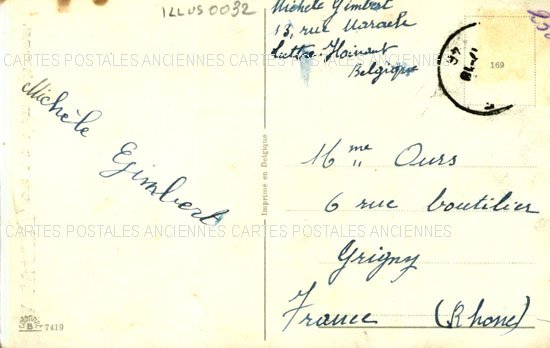 ILLUS0032
Michèle Gimbert
13, rue
Hainaut
Belgique
169
Michèle
Gimbert
Imprimé en Belgique
Mme Ours
6 rue boutilier
Grigny
France (Rhone)
B 7419
CARTES POSTALES ANCIENNES CARTES POSTALES ANCIENNES CARTES POSTALES ANCIENNES
CARTES POSTALES ANCIENNES CARTES POSTALES ANCIENNES CARTES POSTALES ANCIENNES